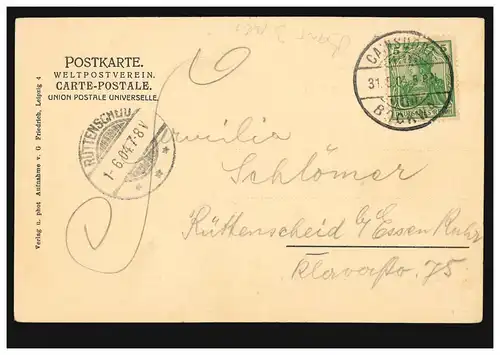 POSTKARTE.
WELTPOSTVEREIN.
CARTE-POSTALE.
UNION POSTALE UNIVERSELLE.
Verlag u. phot Aufnahme v. G Friedrich, Leipzig 4
RÜTTENSCHEID
1-6.04.7-8V
31.5.04
Schlömer
Rüttenscheid b/Essen Ruhr
Klarastr. 75